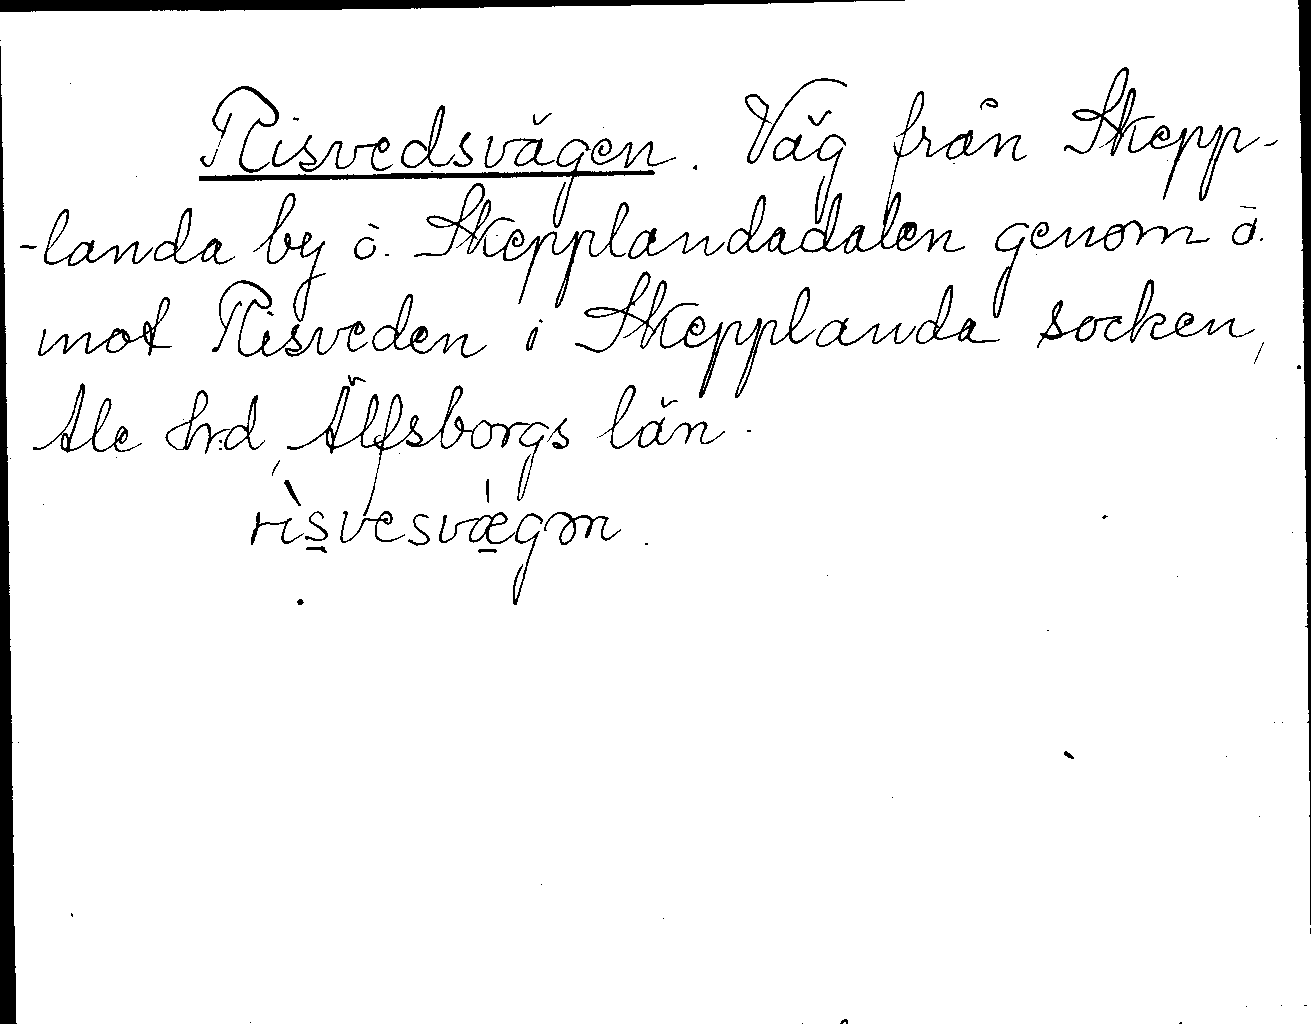 Risvedsvägen. Väg från Skepp-
-landa by ö. Skepplandadalen genom ö.
mot Risveden i Skepplanda socken,
Ale hrd, Älfsborgs län.
rìs̲vesvǽ̲gm.